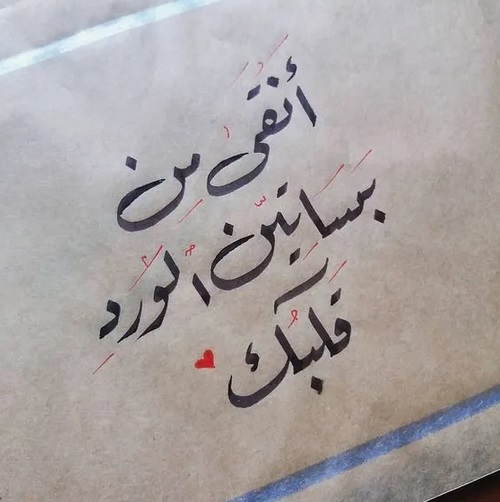 أَنْقَىٰ مِن
بَسَاتِينِ الْوَرْدِ
قَلْبُكَ